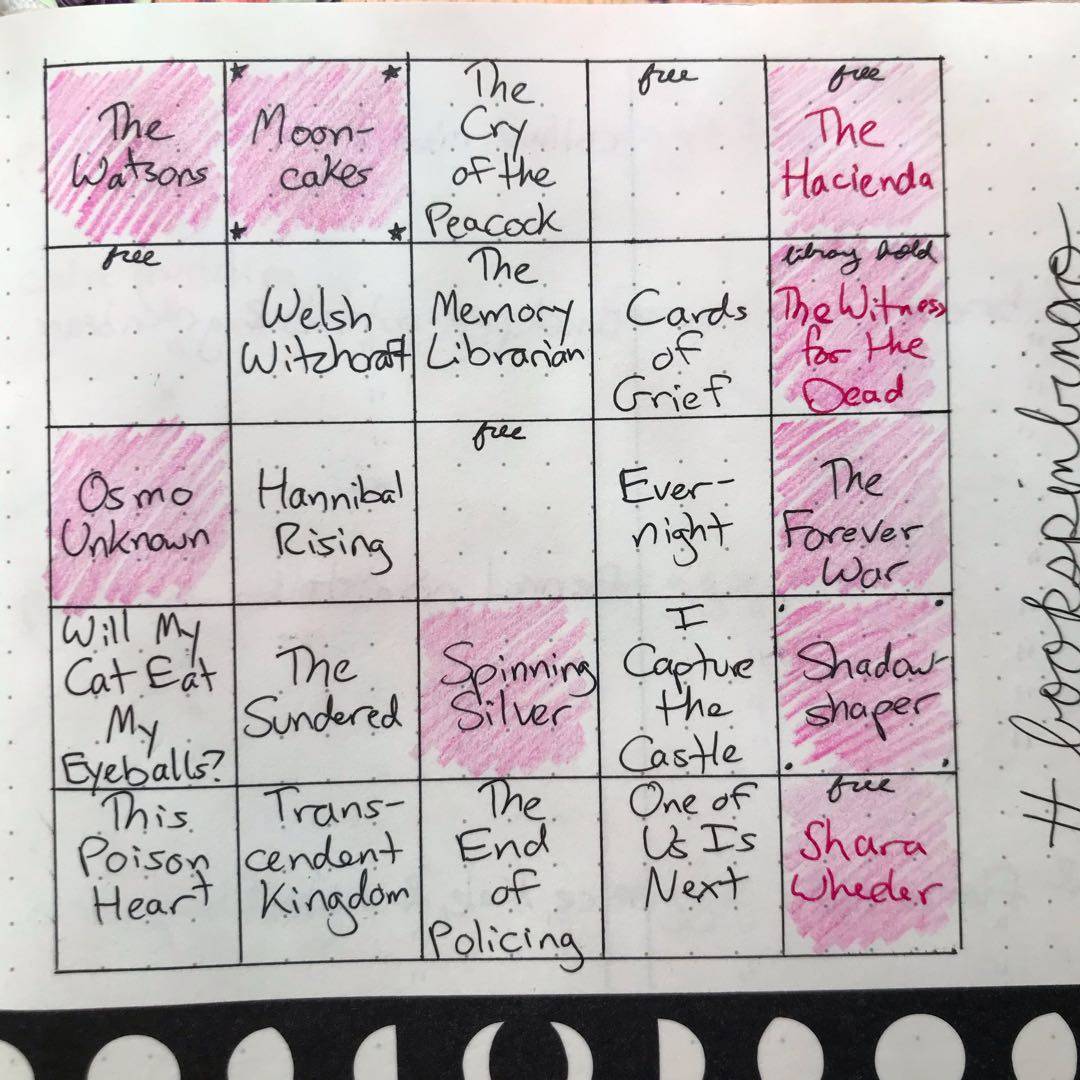 The
Watsons
Moon-
cakes
The
Cry
of the
Peacock
free
free
The
Hacienda
free
Welsh
Witchcraft
The
Memory
Librarian
Cards
of
Grief
library hold
The Witness
for the
Dead
Osmo
Unknown
Hannibal
Rising
free
Ever-
night
The
Forever
War
Will My
Cat Eat
My
Eyeballs?
The
Sundered
Spinning
Silver
I
Capture
the
Castle
Shadow-
shaper
This
Poison
Heart
Trans-
cendent
Kingdom
The
End
of
Policing
One of
Us Is
Next
free
Shara
Wheeler
#bookspinbingo